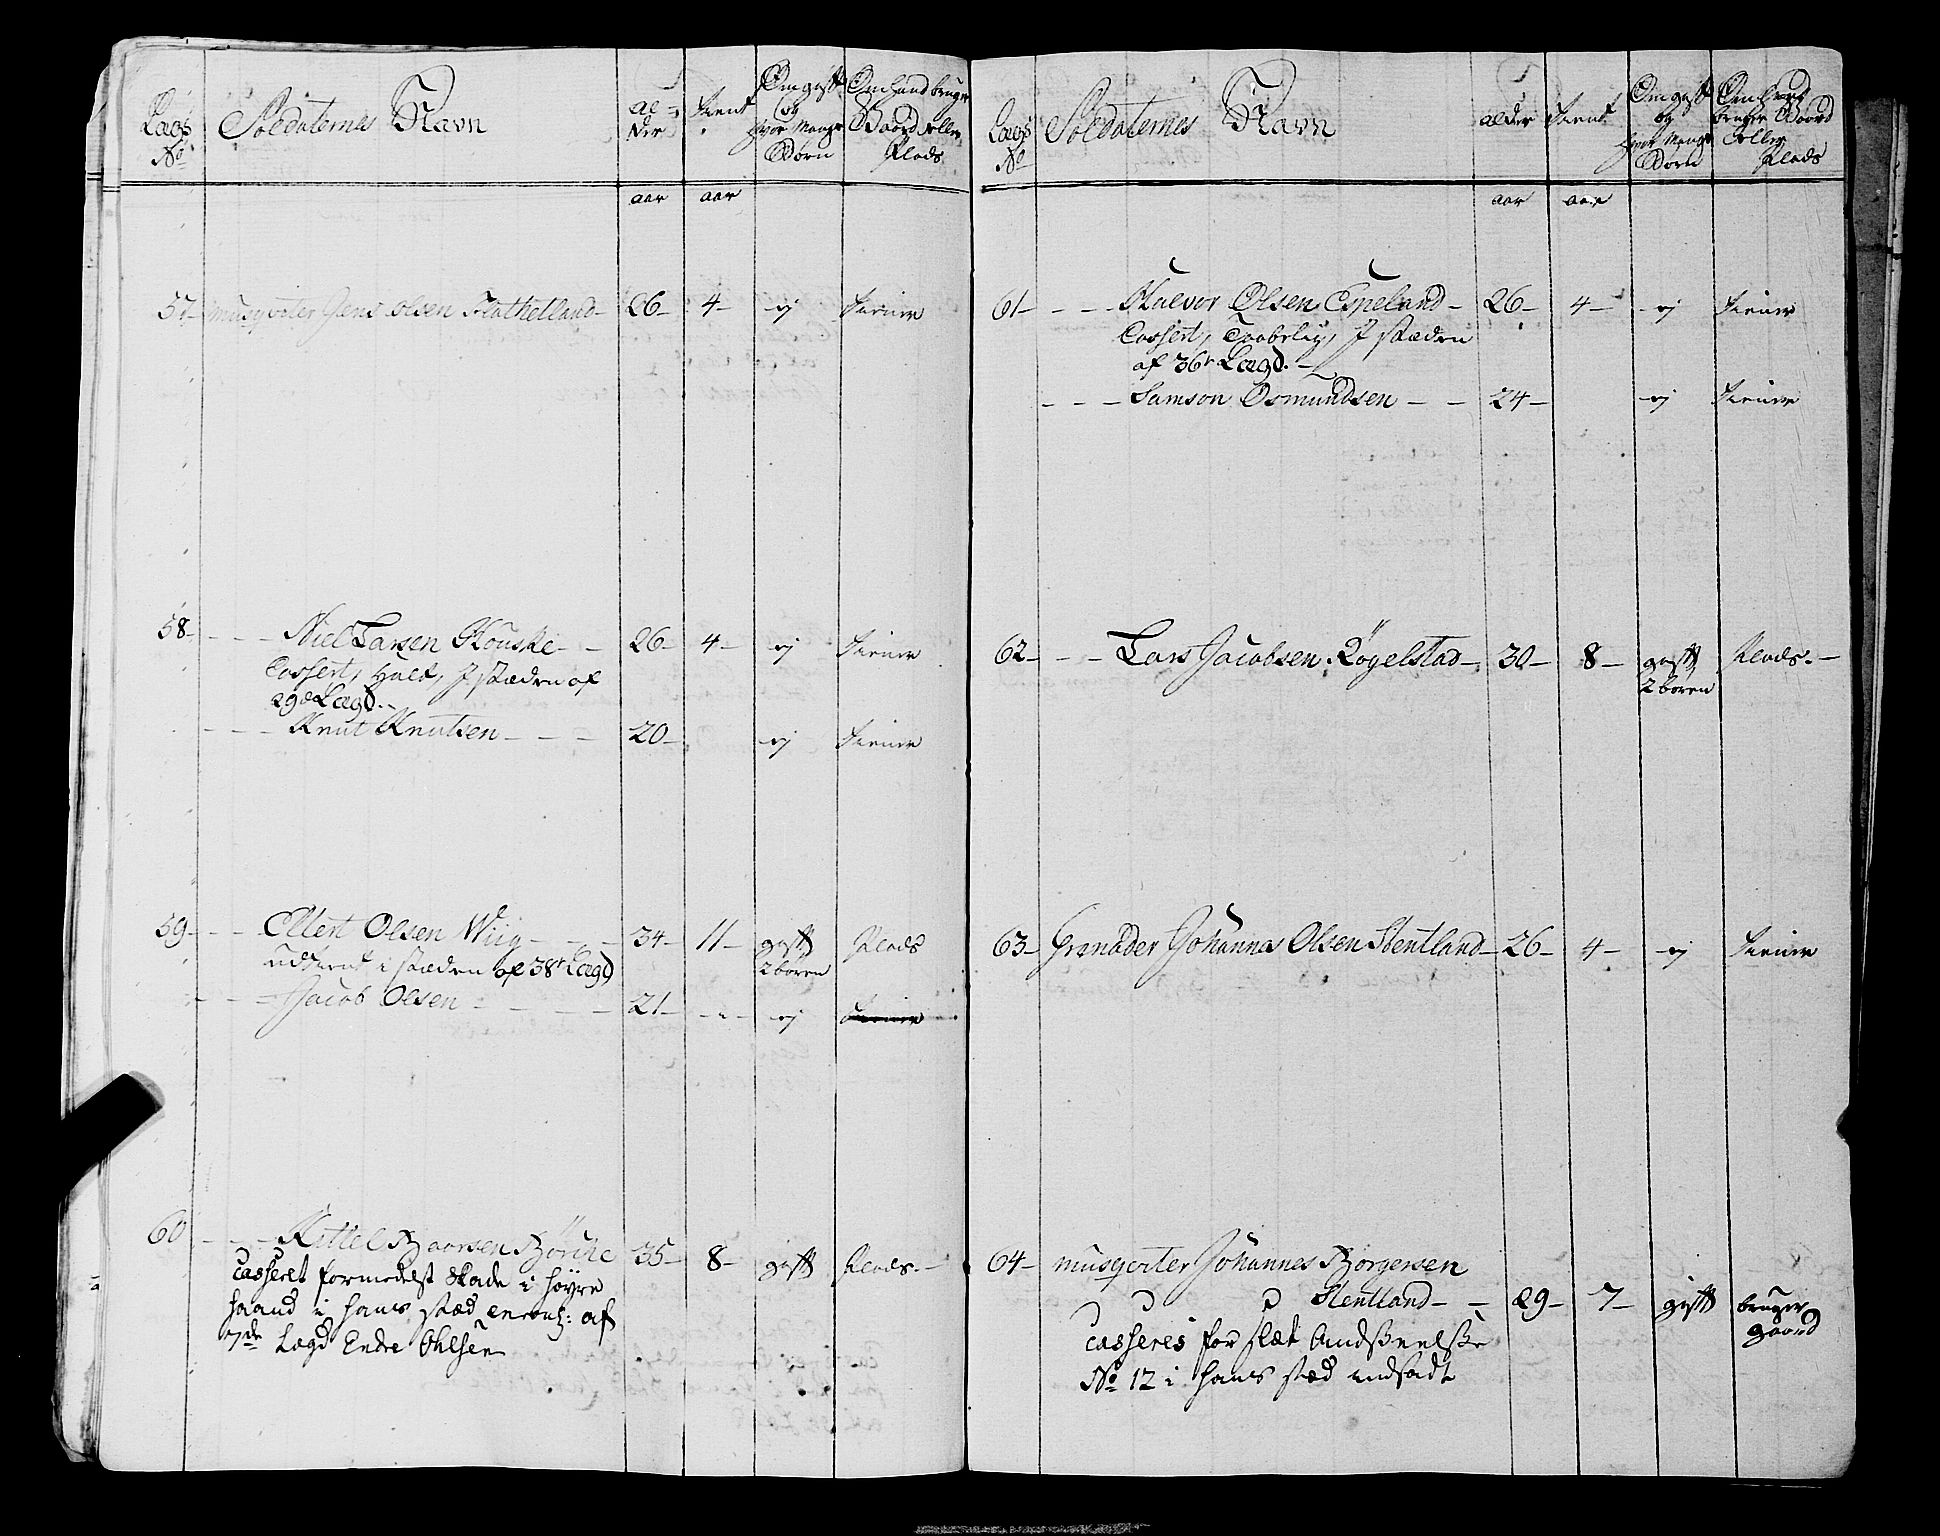 Lægs No
Soldaternes Navn
al=
der
tient
Om gift
og
hvor Mange
Børn
Om hand bruger
Gaard eller
Plads
aar
aar
57 musqveter Jens Olsen Flathetland 26 4 ej tiener
58 Niel Larsen Houske 26 4 ej tiener
Cassert, Halt, J stæden af
29de Lægd.
Knut Knutsen 20 ej tiener
59 Ellert Olsen Wiig 34 11 gift Plads
udtient i stæden af 38te Lægd 2 bören
Jacob Olsen 21 ej tiener
60 Kittel Baarsen Börche 35 8 gift Plads
Casseret formedelst skade i høyre
haand i hans stæd af
7de Lægd Endre Ohlsen
Lægs No
Soldaternes Navn
alder
tient
Om gift
og
hvor Mange
Børn
Om hand
bruger Gaard
eller
Plads
aar
aar
61 Halvor Olsen Espeland 26 4 ej tiener
Cassert, Taabelig, J stæden
af 36te Lægd.
Samson Osmundsen 24 ej tiener
62 Lars Jacobsen Rögelstad 30 8 gift Plads
2 bören
63 Grenader Johannes Olsen Stentland 26 4 ej tiener
64 musqveter Johannes Borgersen
Stentland 29 7 gift bruger
gaard
Casseres for slæt
No 12 i hans stæd indsadt